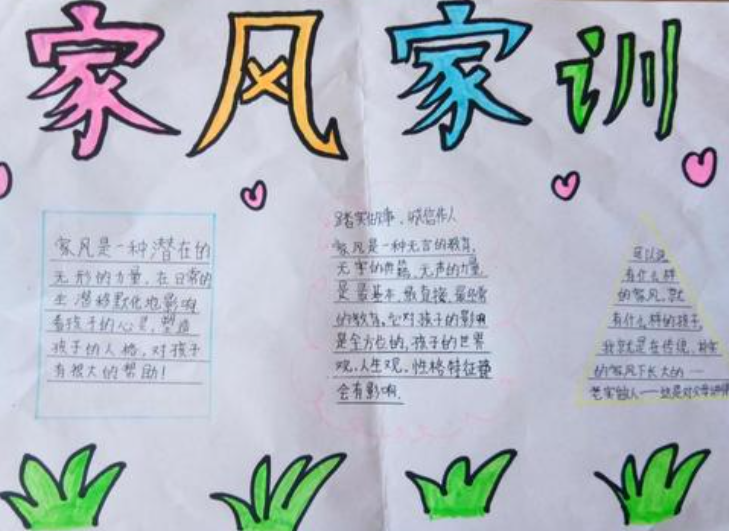 家风家训
家风是一种潜在的
无形的力量，在日常的
生潜移默化地影响
着孩子的心灵，塑造
孩子的人格，对孩子
有很大的帮助！
踏实做事、诚信作人
家风是一种无言的教育，
无字的典籍、无声的力量，
是最基本、最直接、最经常
的教育，它对孩子的影响
是全方位的，孩子的世界
观、人生观、性格特征
会有影响.
可以说
有什么样
的家风，就
有什么样的孩子，
我就是在传统、朴实
的家风下长大的一
老实做人——这是对父母